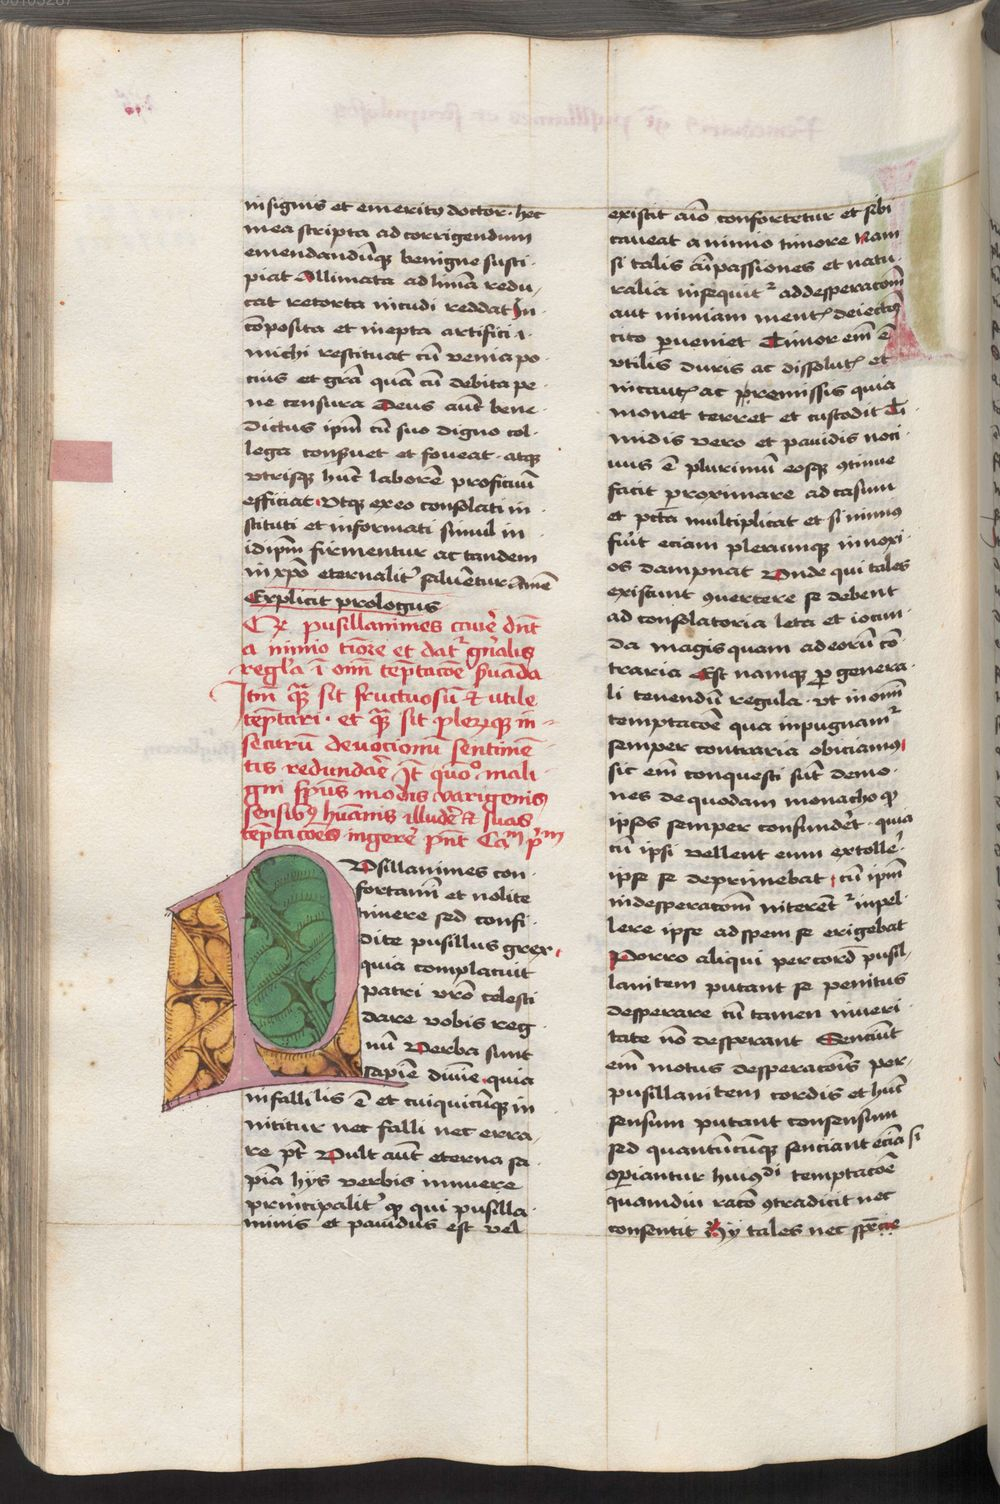 insignis et emeritꝰ doctor · hec
mea scripta ad corrigendum
emendandūqꝫ benigne susci·
piat Allimata ad limā redu,
cat retorta incudi reddat In
cōposita et inepta artifici ·
michi restituat cū venia po·
cius et grā quā cū debita pe·
ne censura Deus aūt bene·
dictus ipm̄ cū suo digno col·
lega conseruet et foveat · atqꝫ
vtrisqꝫ hūc laborē proficiuū
efficiat Vtqꝫ ex eo consolati in·
stituti et informati simul in
idipm̄ firmentur ac tandem
in xpō eternalitˀ saluentur Amē
Explicit prologus
pusillanimes cauēˀ dn̄t
a nimio tīore et datˀ gn̄alis
regl'a ī om̄i tēptacōe ẜuāda
Itm̄ qm̄ sit fructuosū et utile
tēptari · et qm̄ sit plerūqꝫ in=
securū deuocionū sentimē=
tis redundāe Jt quōo mali·
gni sp̄us modis varigenis
sensibꝰ hūanis illudēˀ et suas
tēptacōes ingerēˀ pn̄t Caᵐ pˀᵐ
PVsillanimes con·
fortamī et nolite
timere sed confi·
dite pusillus grex
quia complacuit
patri vr̄o celesti
dare vobis reg·
nū Verba sunt
sapiēe diuīe quia
infallilis ē et cuiquicūqꝫ in
nititur nec falli nec erra,
re pt̄ Vult aūt eterna sa·
pīa hys verbis innuere
principalitˀ qꝫ qui pusilla·
nimis et pauidus est vel
existit aīo confortetur et sibi
caueat a nimio timore Nam
si talis cū passiones et natu·
ralia insequitˀ ad desperacōm̄
aut nimiam mentꝭ deiectōꝫ
cito ꝑueniet Timor em̄ ē
vtilis duris ac dissolutꝭ et
incautꝭ ac premissis quia
monet terret et custodit Ti·
midis vero et pauidis noci·
uus ē plurimū eosqꝫ ꝯtinue
facit proximare ad casum
et pctā multiplicat et si nimiꝰ
fuīt eciam plerumqꝫ innoxi·
os dampnat Vnde qui tales
existunt ꝯuertere se debent
ad consolatoria leta et iocun·
da magis quam ad eorū cō·
traria Est namqꝫ ꝑ genera·
li tenendū regula · vt in om̄i
temptacōe qua inpugnamˀ
semper contraria obiciamus
sic em̄ conquesti sūt demo·
nes de quodam monacho qꝫ
ipsos semper confunderet · quia
cū ipsi vellent eum extolle·
ipse se deprimebat cū ipm̄
in desperacōm̄ niterētˀ inpel·
lere ipse ad spem se erigebat
Porro aliqui per cord̄ pusil·
lanitem putant se penitus
desperare cū tamen in veri·
tate nō desperant Senciūt
em̄ motus desperacōis per·
pusillanitem cordis et hūc
sensum putant consensum
sed quantūcūqꝫ senciant eciā si
operiantur huiꝰᵈⁱ temptacōe
quamdiu racō ꝯtradicit nec
consentit Hy tales nec spēcie